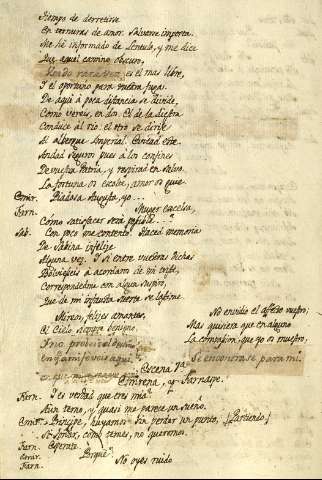 Tiempo de derretirse
En ternuras de amor. Salvarse importa.
Me hé informado de Lentulo, y me dice
Que aquel camino obscuro,
es el mas libre,
Y el oportuno para vuestra fuga.
De aquí à poca distancia se divide,
Como vereis, en dos. El de la diestra
Conduce al rio. el otro se dirije
Al albergue Imperial. Evitad este.
Andad seguros pues à los confines
De vuestra Patria, y respirad en salvo.
La fortuna os escolte, amor os guie.
Emir. Piadosa Augusta, yo...
Farn. Muger excelsa,
Cómo satisfacer será posible...?
Sab. Con poco me contento. Haced memoria
De Sabina infelize
Alguna vez. Y si entre vuestras dichas
Bolvieseis à acordaros de mi triste,
Correspondedme con algun suspiro,
Que de mi infausta suerte se lastime.
Miren, felizes amantes,
El Cielo, siempre benigno,
No envidio el afecto vuestro,
Mas quisiera que en alguno
La compasion, que yo os muestro,
Se encontrase para mi.
Escena 7ª
Emirena, y Farnaspe.
Farn. Y es verdad que eres mia?
Aun temo, y quasi me parece un sueño.
Emir. Principe, huyamos sin perder un punto, (Partiendo)
Farn. Esperate.
Emir. Porqué?
Farn. No oyes ruido